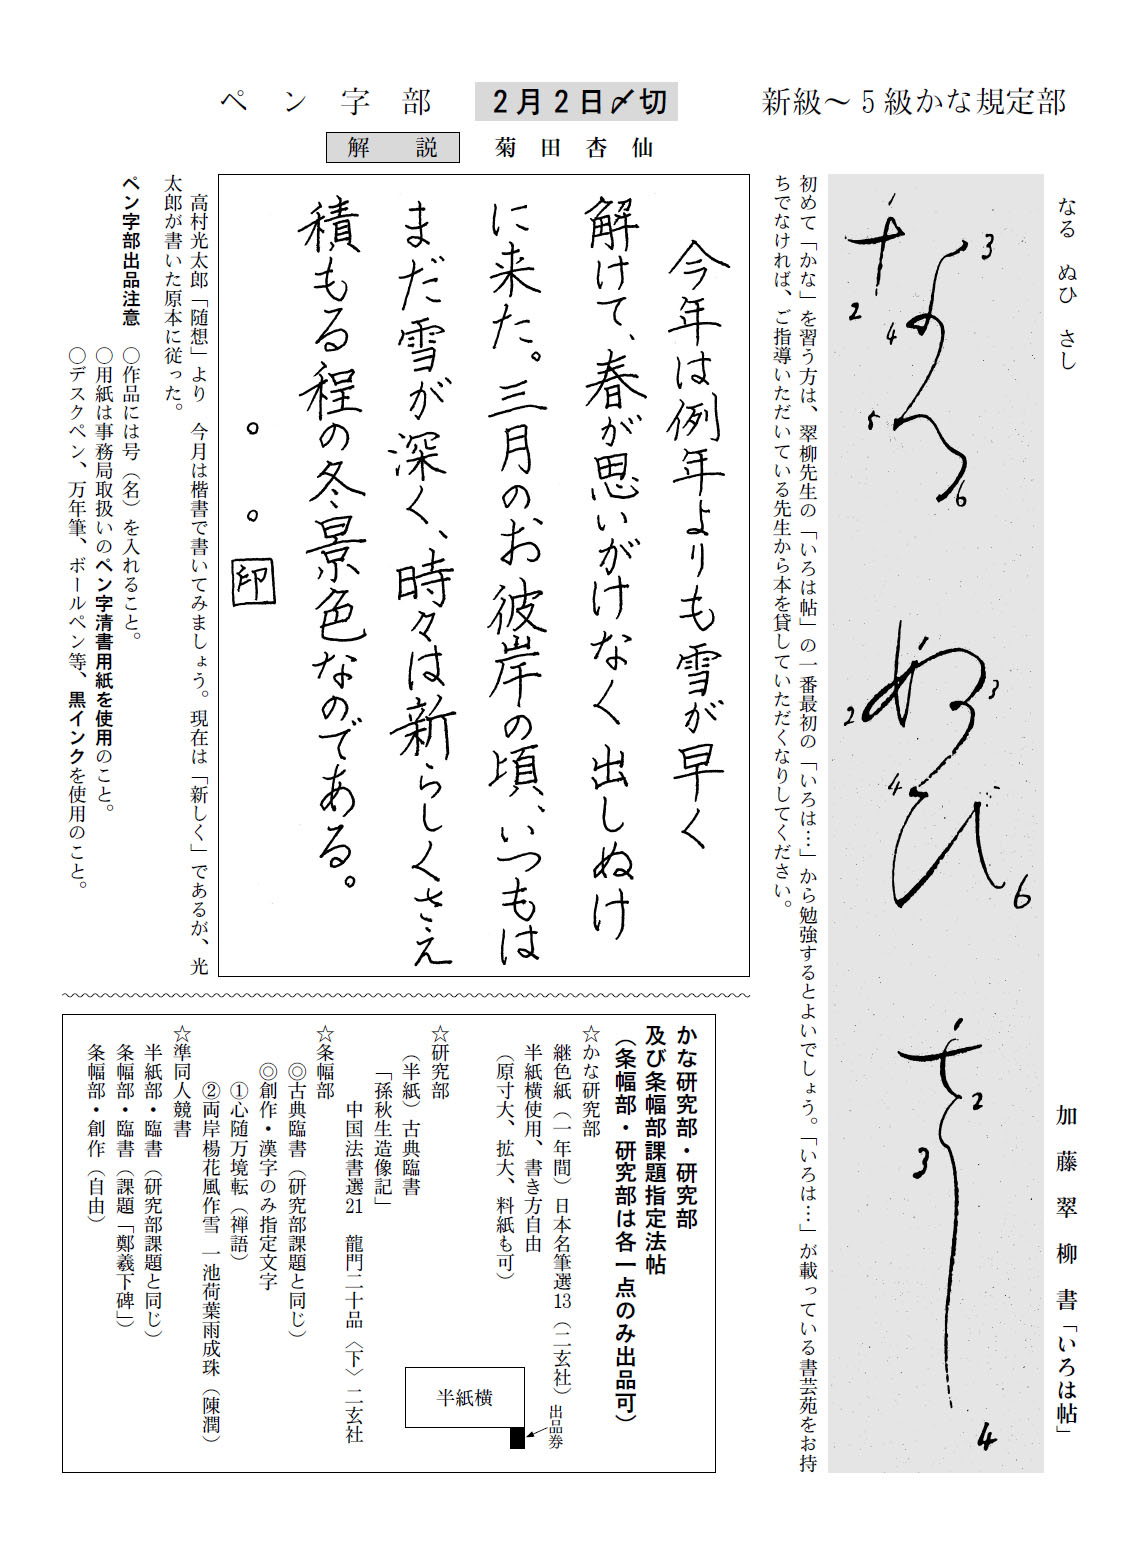 新級～５級かな規定部
なる　ぬひ　さし
加藤翠柳書「いろは帖」
なる
1
2
3
4
5
6
ぬひ
2
3
4
6
さし
2
3
4
初めて「かな」を習う方は、翠柳先生の「いろは帖」の一番最初の「いろは…」から勉強するとよいでしょう。「いろは…」が載っている書芸苑をお持
ちでなければ、ご指導いただいている先生から本を貸していただくなりしてください。
ペン字部
２月２日〆切
解説
菊田杏仙
今年は例年よりも雪が早く
解けて、春が思いがけなく出しぬけ
に来た。三月のお彼岸の頃、いつもは
まだ雪が深く、時々は新らしくさえ
積もる程の冬景色なのである。
印
高村光太郎「随想」より　今月は楷書で書いてみましょう。現在は「新しく」であるが、光
太郎が書いた原本に従った。
ペン字部出品注意　○作品には号（名）を入れること。
○用紙は事務局取扱いのペン字清書用紙を使用のこと。
○デスクペン、万年筆、ボールペン等、黒インクを使用のこと。
かな研究部・研究部
及び条幅部課題指定法帖
（条幅部・研究部は各一点のみ出品可）
☆かな研究部
継色紙（一年間）日本名筆選13（二玄社）
半紙横使用、書き方自由
（原寸大、拡大、料紙も可）
半紙横
出品券
☆研究部
（半紙）古典臨書
「孫秋生造像記」
中国法書選21　龍門二十品〈下〉二玄社
☆条幅部
◎古典臨書（研究部課題と同じ）
◎創作・漢字のみ指定文字
①心随万境転（禅語）
②両岸楊花風作雪　一池荷葉雨成珠（陳潤）
☆準同人競書
半紙部・臨書（研究部課題と同じ）
条幅部・臨書（課題「鄭羲下碑」）
条幅部・創作（自由）